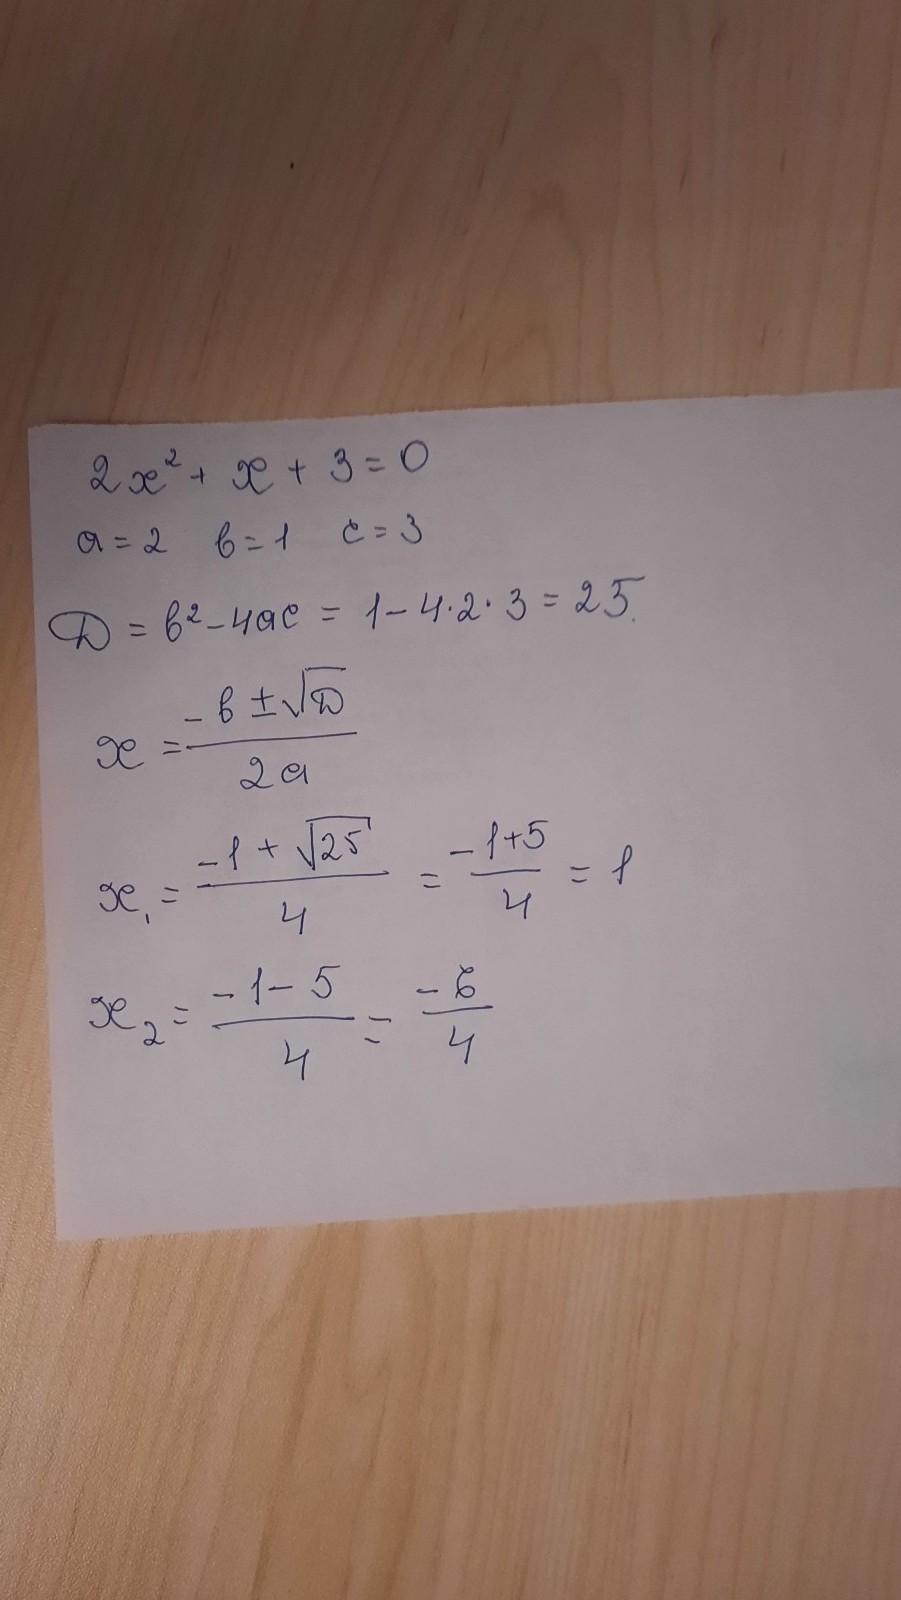 2x² + x + 3 = 0
a = 2 b = 1 c = 3
D = b² - 4ac = 1 - 4·2·3 = 25.
x = (-b ± √D) / 2a
x₁ = (-1 + √25) / 4 = (-1+5) / 4 = 1
x₂ = (-1 - 5) / 4 = -6 / 4